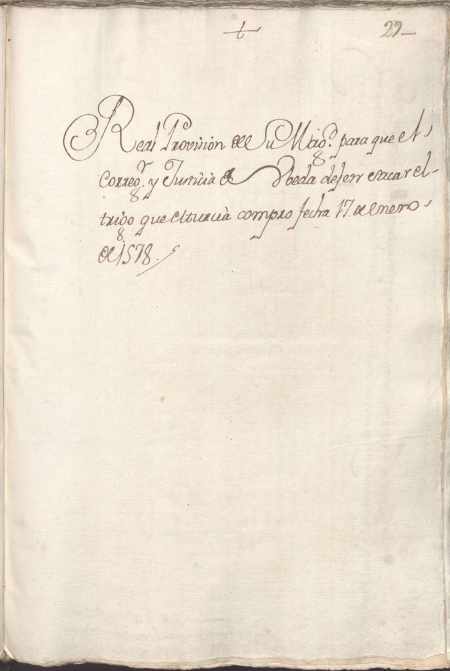 29
Real Provision de Su Mag.d para que el
Correg.r y Justicia de Vbeda dejen sacar el
trigo que Murcia compro fecha 17 de enero
de 1578.